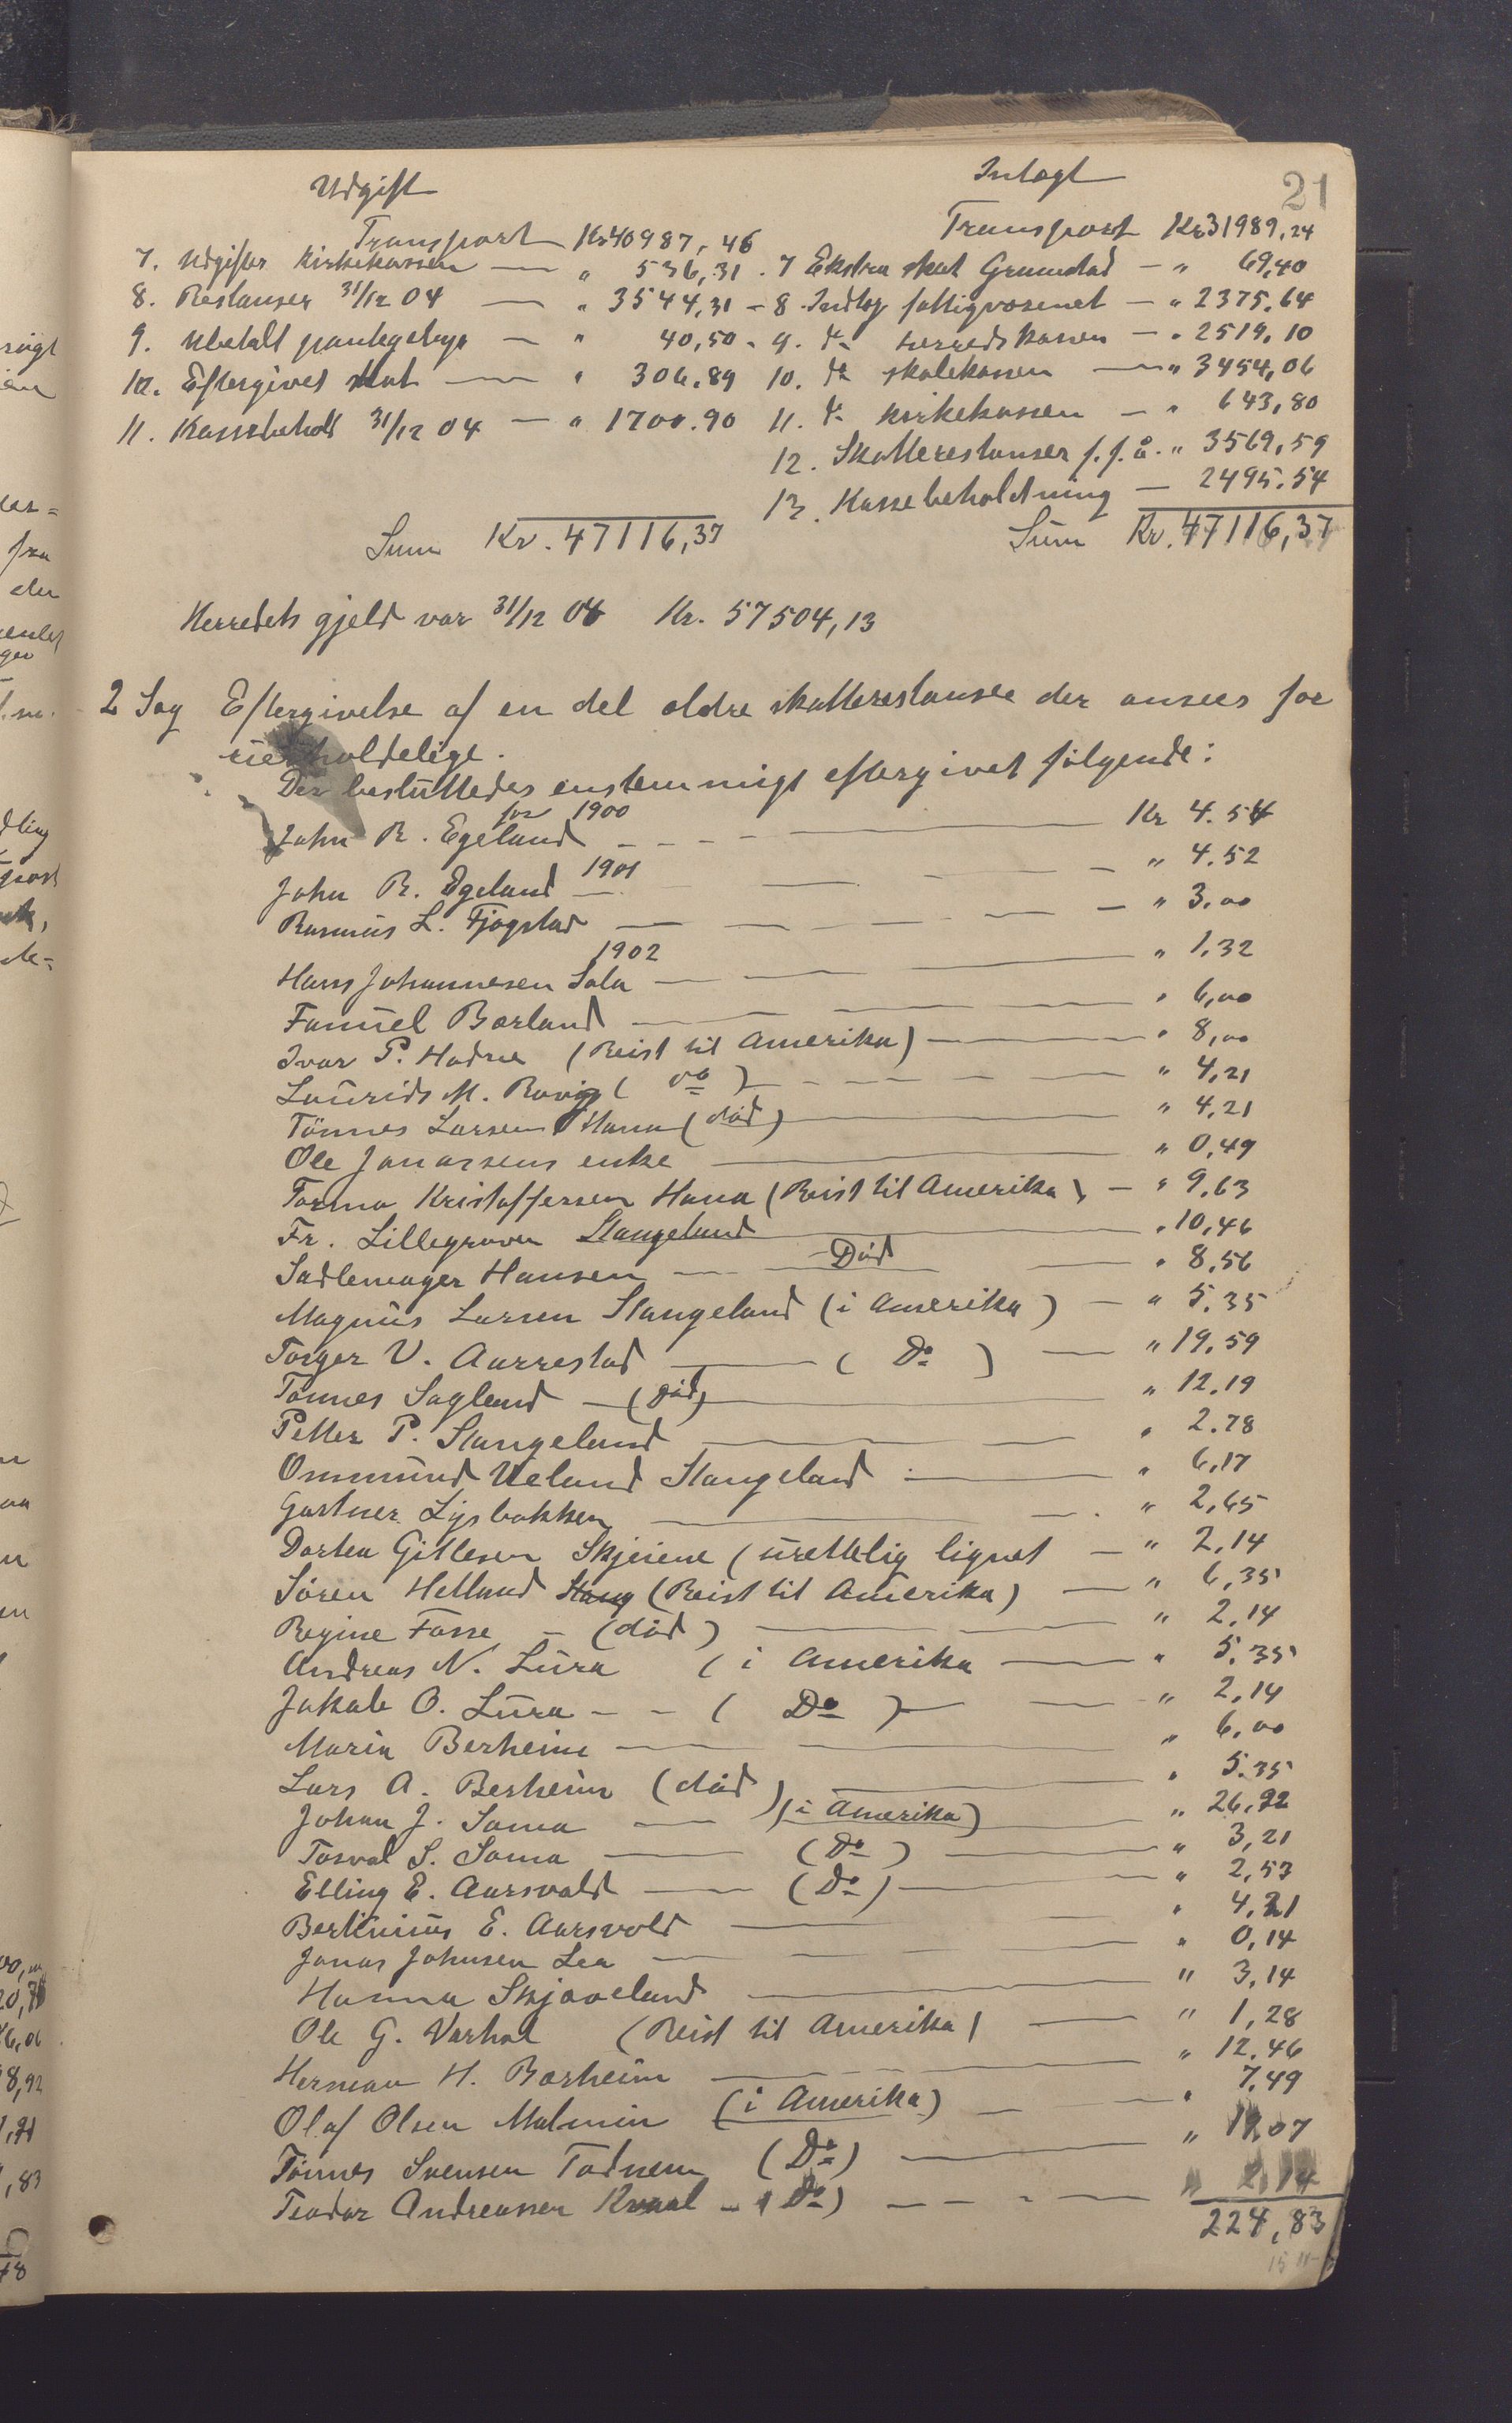 21
Udgift
Transport Kr 40987,46
7. Udgifter Kirkekassen — " 536,31.
8. Restanser 31/12 04 — " 3544,31
9. Ubetalt pantegebyr — " 40,50
10. Eftergivet skat — " 306.89
11. Kassebehold 31/12 04 — " 1700.90
Sum Kr. 47116,37
Intægt
Transport Kr 31989,24
7 Ekstra skat Grannestad — " 69,40
8. Indtæg fattigvæsenet — " 2375,64
9. do herredskassen — " 2519,10
10. do skolekassen — " 3454,06
11. do kirkekassen — " 643,80
12. Skatterestanser f.f.å. " 3569,59
13. Kassebeholdning — 2495.54
Sum Kr. 47116,37
Herredets gjeld var 31/12 04 Kr. 57504,13
2 Sag Eftergivelse af en del ældre skatterestanser der ansees for
uerholdelige.
Der besluttedes enstemmigt eftergivet følgende:
for 1900
John R. Egeland — Kr 4.54
1901
John R. Egeland — " 4.52
Rasmus L. Fjogstad — " 3.00
1902
Hans Johannesen Sola — " 1.32
Fanuel Børland — " 6,00
Ivar P. Hadne (Reist til Amerika) — " 8,00
Laurids M. Rovig ( do ) — " 4,21
Tönnes Larsen Hana (död) — " 4,21
Ole Jonassens enke — " 0,49
Tormo Kristoffersen Hana (Reist til Amerika) — " 9.63
Fr. Lillegraven Stangeland — " 10,46
Sadlemager Hansen — Död — " 8,56
Magnus Larsen Stangeland (i Amerika) — " 5.35
Torger V. Aarrestad — ( Do ) — " 19.59
Tönnes Sagland — (Död) — " 12.19
Petter P. Stangeland — " 2.78
Ommund Ueland Stangeland — " 6,17
Gartner Lysbakken — " 2,65
Dorten Gitlesen Skjeiene (urettelig lignet — " 2,14
Sören Helland Stang (Reist til Amerika) — " 6,35
Regine Fosse — (död) — " 2,14
Andreas N. Lura (i Amerika — " 5,35
Jakob O. Lura — ( Do ) — " 2,14
Maria Berheim — " 6,00
Lars A. Berheim (död) — " 5.35
Johan J. Soma — (i Amerika) — " 26,22
Torval S. Soma — (Do) — " 3,21
Elling E. Aarsvold — (Do) — " 2,53
Bertinius E. Aarsvold — " 4,21
Jonas Johnsen Lea — " 0,14
Hanna Skjæveland — " 3,14
Ole G. Varhol (Reist til Amerika) — " 1,28
Herman H. Børheim — " 12,46
Olaf Olsen Malmin (i Amerika) — " 7.49
Tönnes Svensen Todnem (Do) — " 19,07
Teodor Andreassen Kvaal — (Do) — " 2,14
224,83